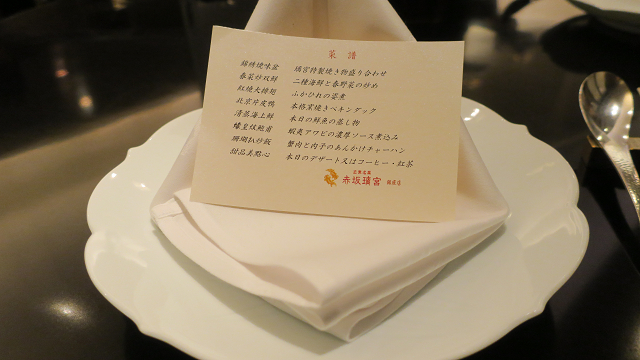 菜譜
錦繡燒味盆 璃宮特製焼き物盛り合わせ
春菜炒双鮮 二種海鮮と春野菜の炒め
紅燒大排翅 ふかひれの姿煮
北京片皮鴨 本格窯焼きペキンダック
清蒸海上鮮 本日の鮮魚の蒸し物
蠔皇鮑 蝦夷アワビの濃厚ソース煮込み
珊瑚扒炒飯 蟹肉と内子のあんかけチャーハン
甜品美點心 本日のデザート又はコーヒー・紅茶
赤坂璃宮 銀座店